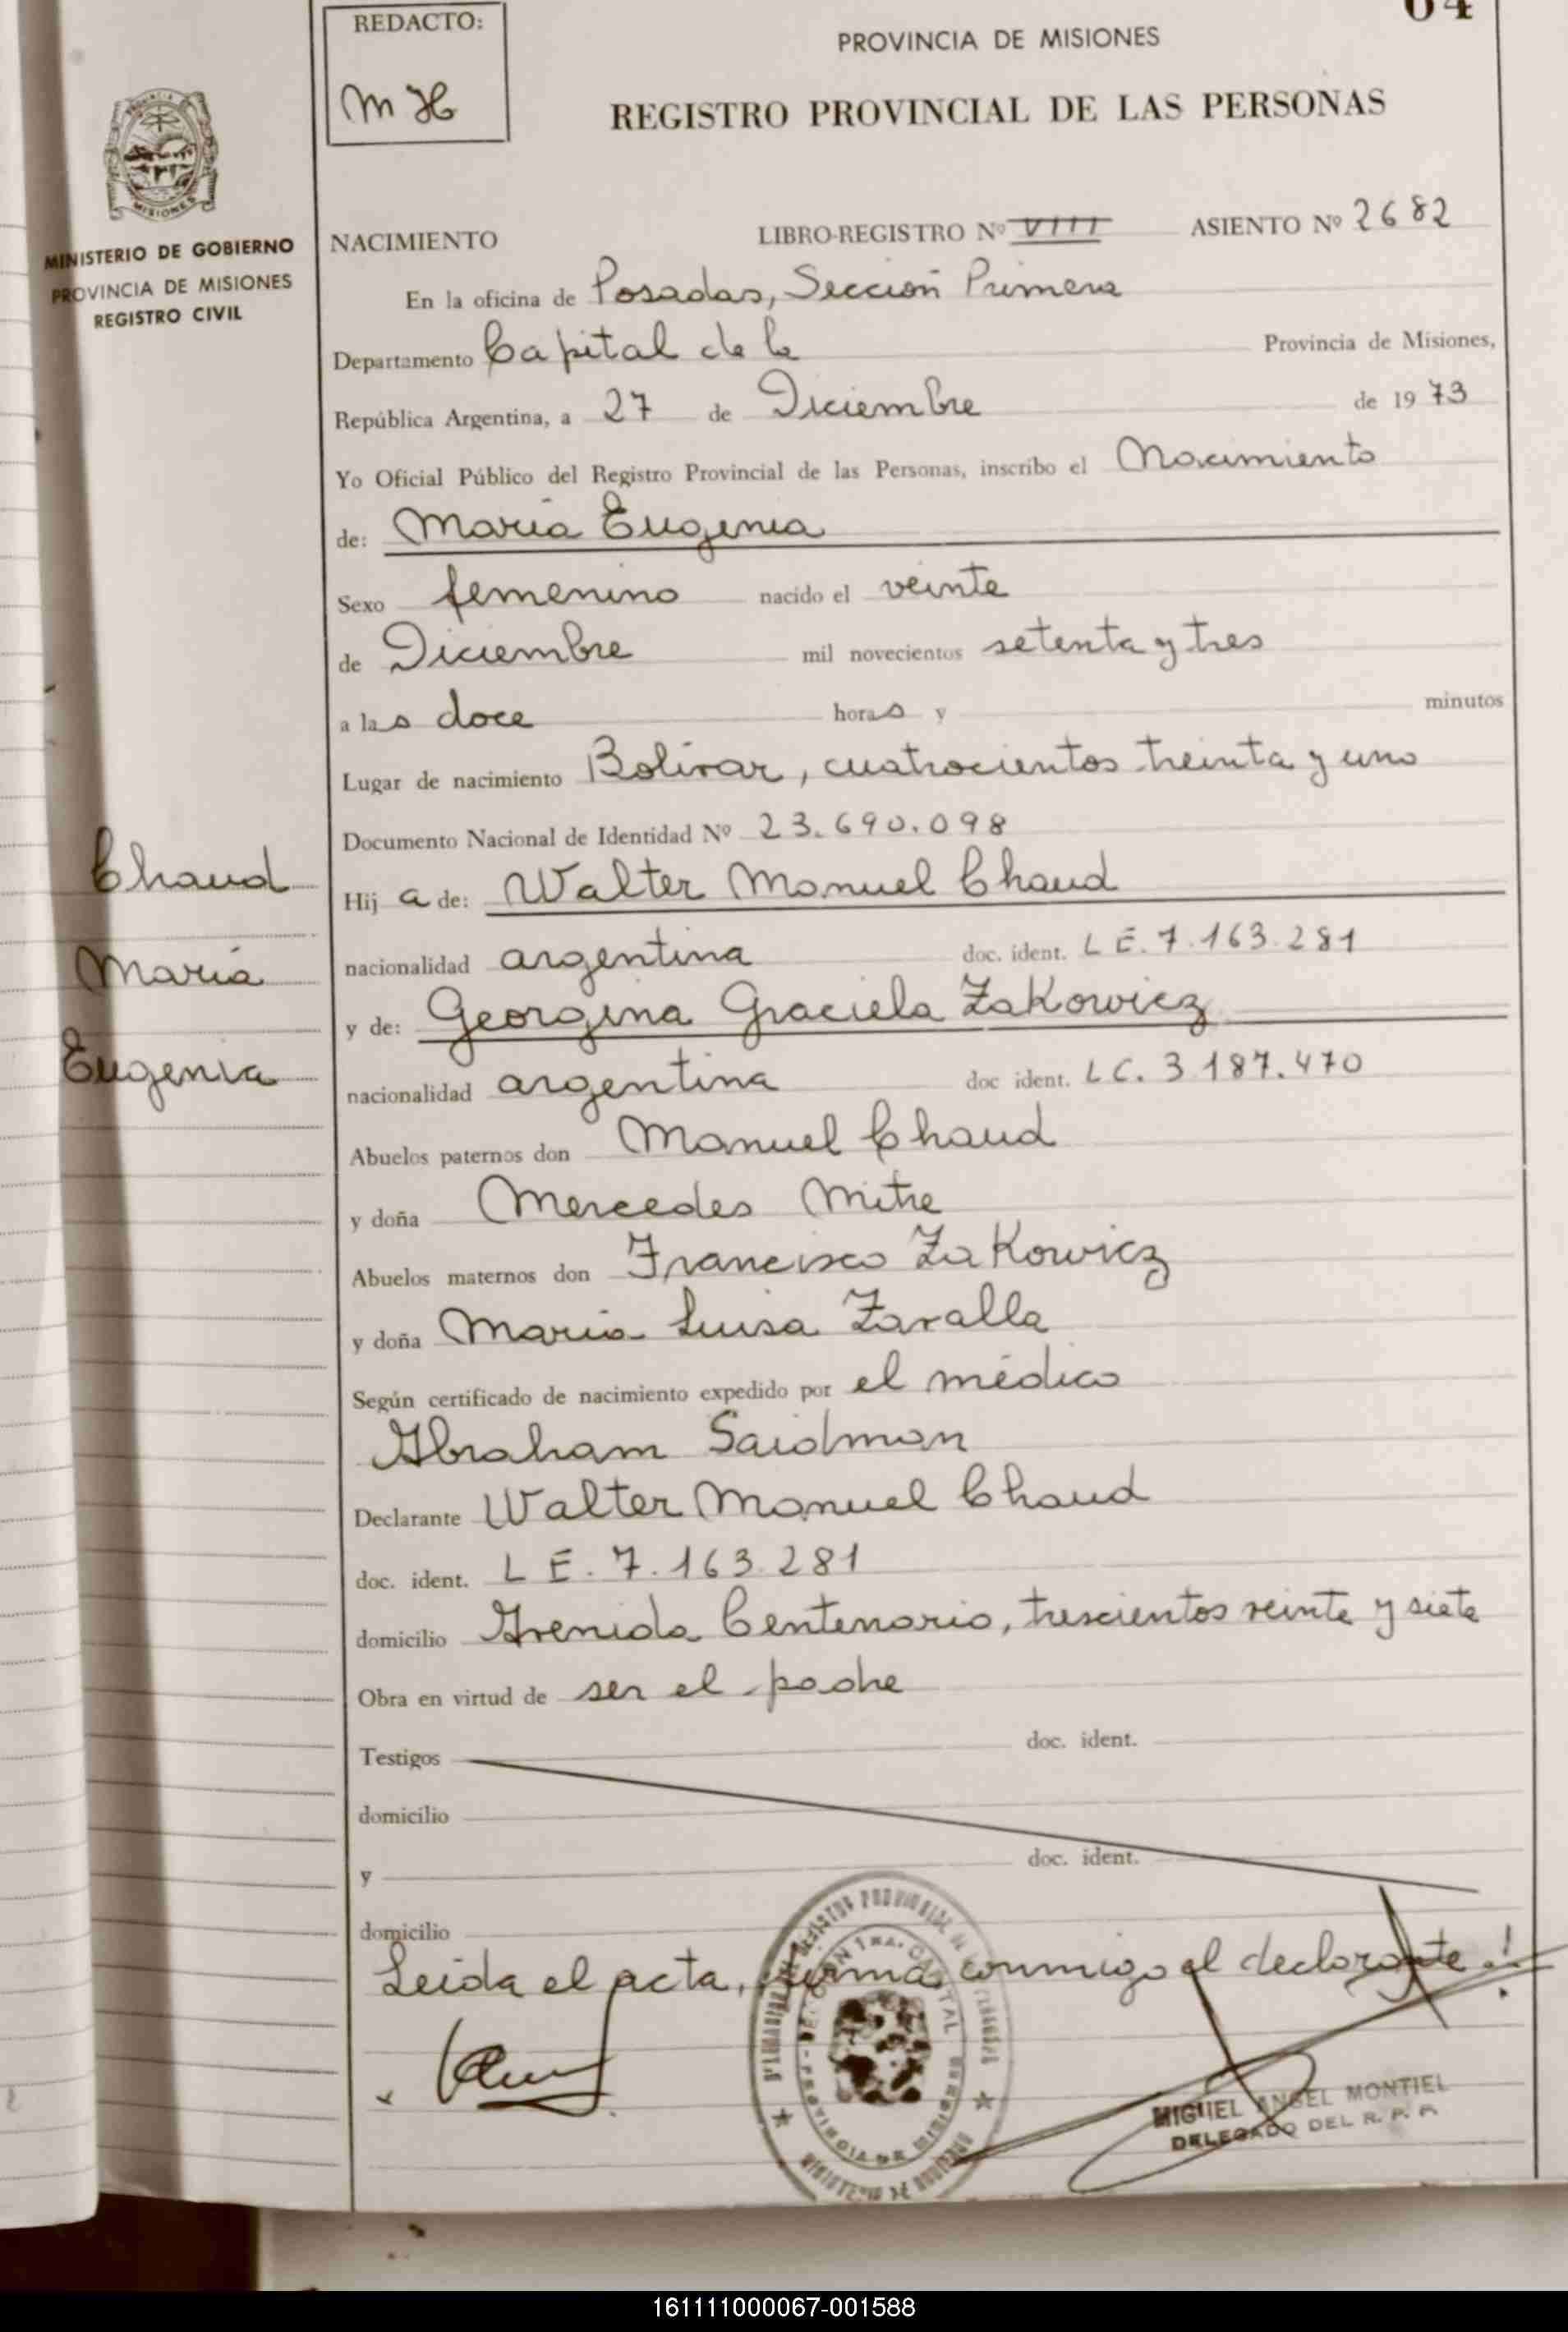 REDACTO:
M H
04
PROVINCIA DE MISIONES
REGISTRO PROVINCIAL DE LAS PERSONAS
MISIONES
MINISTERIO DE GOBIERNO
PROVINCIA DE MISIONES
REGISTRO CIVIL
NACIMIENTO LIBRO-REGISTRO Nº VIII ASIENTO Nº 2682
En la oficina de Posadas, Sección Primera
Departamento Capital de la Provincia de Misiones,
República Argentina, a 27 de Diciembre de 1973
Yo Oficial Público del Registro Provincial de las Personas, inscribo el Nacimiento
de: María Eugenia
Sexo femenino nacido el veinte
de Diciembre mil novecientos setenta y tres
a las doce horas y minutos
Lugar de nacimiento Bolívar, cuatrocientos treinta y uno
Documento Nacional de Identidad Nº 23.690.098
Chaud
Hij a de: Walter Manuel Chaud
María
nacionalidad argentina doc. ident. L E. 7.163.281
y de: Georgina Graciela Zakowicz
Eugenia
nacionalidad argentina doc ident. LC. 3.187.470
Abuelos paternos don Manuel Chaud
y doña Mercedes Mitre
Abuelos maternos don Francisco Zakowicz
y doña María Luisa Zaralla
Según certificado de nacimiento expedido por el médico
Abraham Saidman
Declarante Walter Manuel Chaud
doc. ident. L E. 7.163.281
domicilio Avenida Centenario, trescientos veinte y siete
Obra en virtud de ser el padre
Testigos doc. ident.
domicilio
y doc. ident.
domicilio
Leída el acta, firma conmigo el declarante.!
MIGUEL ANGEL MONTIEL
DELEGADO DEL R. P. P.
161111000067-001588